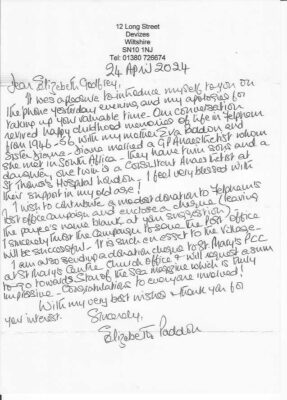 12 Long Street
Devizes
Wiltshire
SN10 1NJ
Tel: 01380 726674
24 April 2024
Dear Elizabeth Godfrey,
It was a pleasure to introduce myself to you on
the phone yesterday evening, and my apologies for
taking up your valuable time. Our conversation
revived happy childhood memories of life in Felpham
from 1946-56 with my mother Eva Paddon and
Sister Siona. Siona married a GP Anaesthetist whom
she met in South Africa - they have twin sons and a
daughter, one twin is a Consultant Anaesthetist at
St Thomas's Hospital London. I feel very blessed with
their support in my old age!
I wish to contribute a modest donation to Felpham's
Post Office Campaign and enclose a cheque (leaving
the payee's name blank at your suggestion)
I sincerely trust the Campaign to save the Post Office
will be successful - it is such an asset to the village -
I am also sending a donation cheque to St Mary's PCC
at St Mary's Centre, Church Office & will request a sum
to go towards Star of the Sea magazine which is truly
impressive - Congratulations to everyone involved!
With my very best wishes & thank you for
your interest.
Sincerely,
Elizabeth Paddon